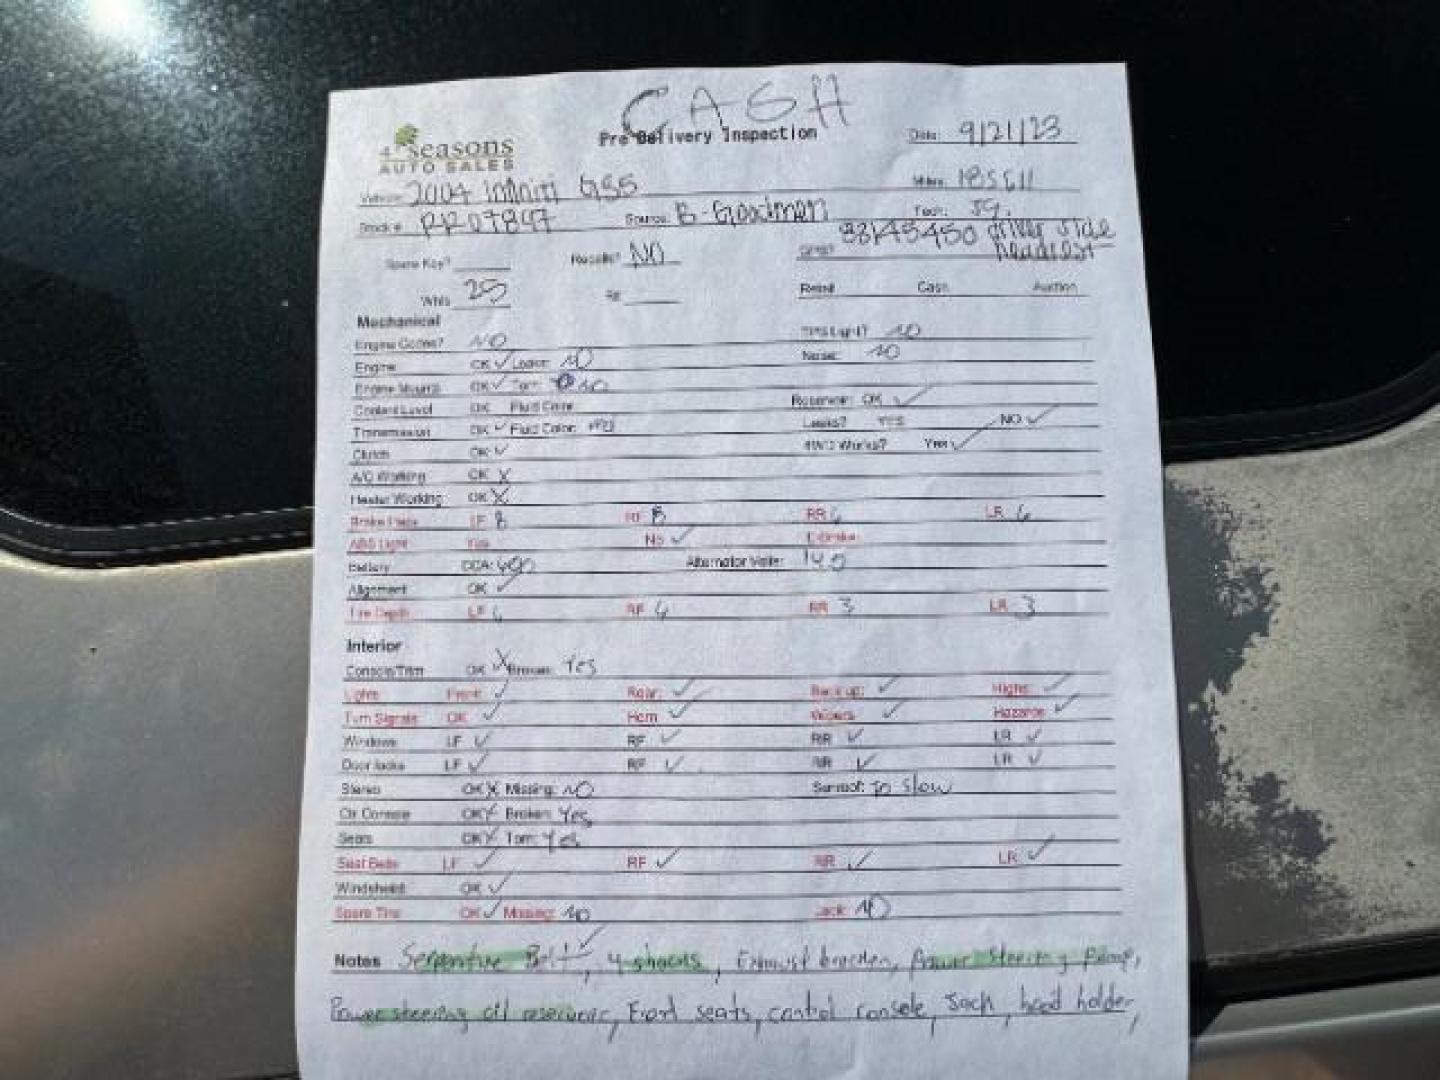 CASH
Pre Delivery Inspection
Date: 9/21/23
4 Seasons
AUTO SALES
Vehicle: 2004 Infiniti Miles:
Stock # RR07847 Source: B-Goodman Tech: JG.
driver side
headrest
Spare Key? Recalls? NO GPS?
Whls 25
Retail Cash Auction
Mechanical
Engine Codes? NO TPS Light? NO
Engine OK ✓ Leaks: NO Noise: NO
Engine Mounts OK ✓ Torn: NO
Coolant Level OK Fluid Color: Reservoir: OK ✓
Transmission OK ✓ Fluid Color: red Leaks? YES NO ✓
Clutch OK ✓ 4WD Works? Yes ✓
A/C Working OK X
Heater Working OK X
Brake Pads LF 8 RF 8 RR 6 LR 6
ABS Light Yes No ✓ E-Brake:
Battery CCA: 600 Alternator Volts:
Alignment OK ✓
Tire Depth LF RF RR 3 LR 3
Interior
Console/Trim OK X Broken: Yes
Lights Front: ✓ Rear: ✓ Back up: ✓ Highs: ✓
Turn Signals OK ✓ Horn ✓ Wipers ✓ Hazards ✓
Windows LF ✓ RF ✓ RR ✓ LR ✓
Door locks LF ✓ RF ✓ RR ✓ LR ✓
Stereo OK X Missing: NO Sunroof: to slow
Ctr Console OK X Broken: Yes
Seats OK X Torn: Yes
Seat Belts LF ✓ RF ✓ RR ✓ LR ✓
Windshield OK ✓
Spare Tire OK ✓ Missing: NO Jack: NO
Notes Serpentine Belt ✓, 4 shocks, Exhaust broken, Power Steering pump,
Power steering oil reservoir, Front seats, control console, Jack, hood holder,